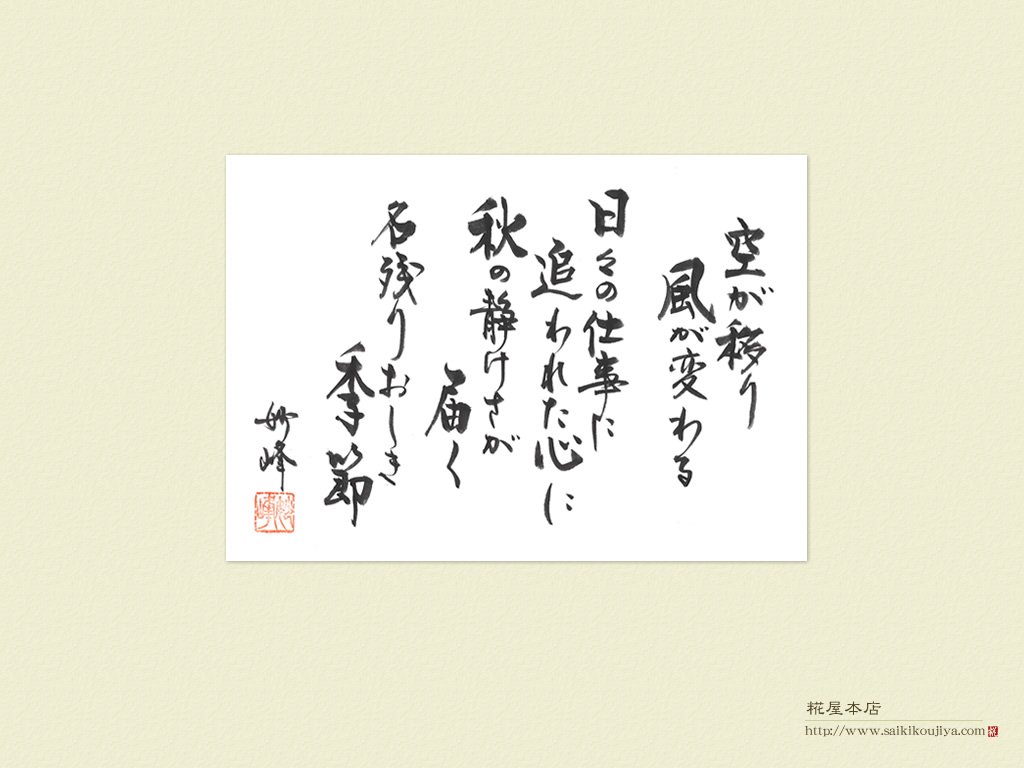 空が移り
風が変わる
日々の仕事に
追われた心に
秋の静けさが
届く
名残りおしき
季節
妙峰
糀屋本店
http://www.saikikoujiya.com